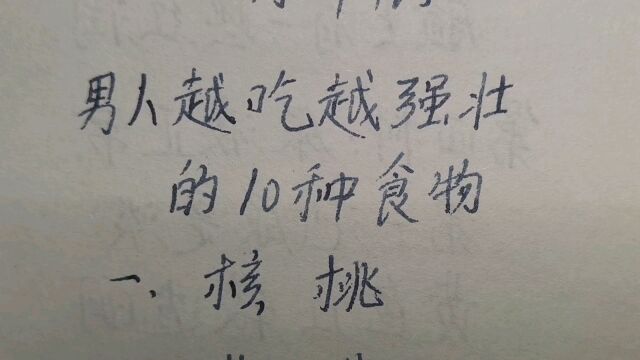 男人越吃越强壮
的10种食物
一.核桃